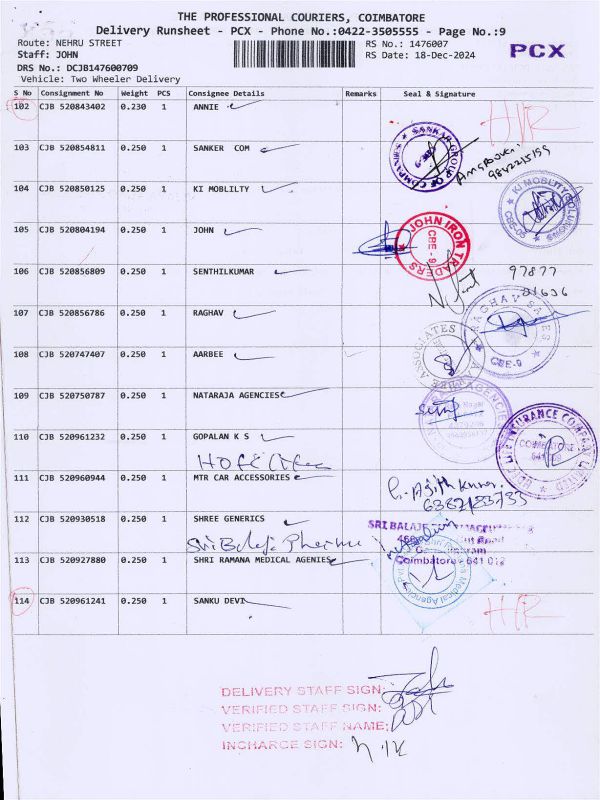 THE PROFESSIONAL COURIERS, COIMBATORE
Delivery Runsheet - PCX - Phone No.:0422-3505555 - Page No.:9
Route: NEHRU STREET RS No.: 1476007 PCX
Staff: JOHN RS Date: 18-Dec-2024
DRS No.: DCJB147600709
Vehicle: Two Wheeler Delivery
S No Consignment No Weight PCS Consignee Details Remarks Seal & Signature
102 CJB 520843402 0.230 1 ANNIE
103 CJB 520854811 0.250 1 SANKER COM
SANKAR GROUP OF COMPANIES
9842215159
104 CJB 520850125 0.250 1 KI MOBLILTY
KI MOBILITY SOLUTIONS
CBE-05
105 CJB 520804194 0.250 1 JOHN
JOHN IRON TRADERS
CBE-9
106 CJB 520856809 0.250 1 SENTHILKUMAR
97877
107 CJB 520856786 0.250 1 RAGHAV
RAGHAV SALES
CBE-9
108 CJB 520747407 0.250 1 AARBEE
ASSOCIATES
109 CJB 520750787 0.250 1 NATARAJA AGENCIES
AGENCIES
110 CJB 520961232 0.250 1 GOPALAN K S
INSURANCE COMPANY LIMITED
COIMBATORE
111 CJB 520960944 0.250 1 MTR CAR ACCESSORIES
6387183733
112 CJB 520930518 0.250 1 SHREE GENERICS
Sri Balaji Pharma
SRI BALAJI
Coimbatore - 641 012
113 CJB 520927880 0.250 1 SHRI RAMANA MEDICAL AGENIES
Medical Agency
114 CJB 520961241 0.250 1 SANKU DEVI
DELIVERY STAFF SIGN:
VERIFIED STAFF SIGN:
VERIFIED STAFF NAME:
INCHARGE SIGN: